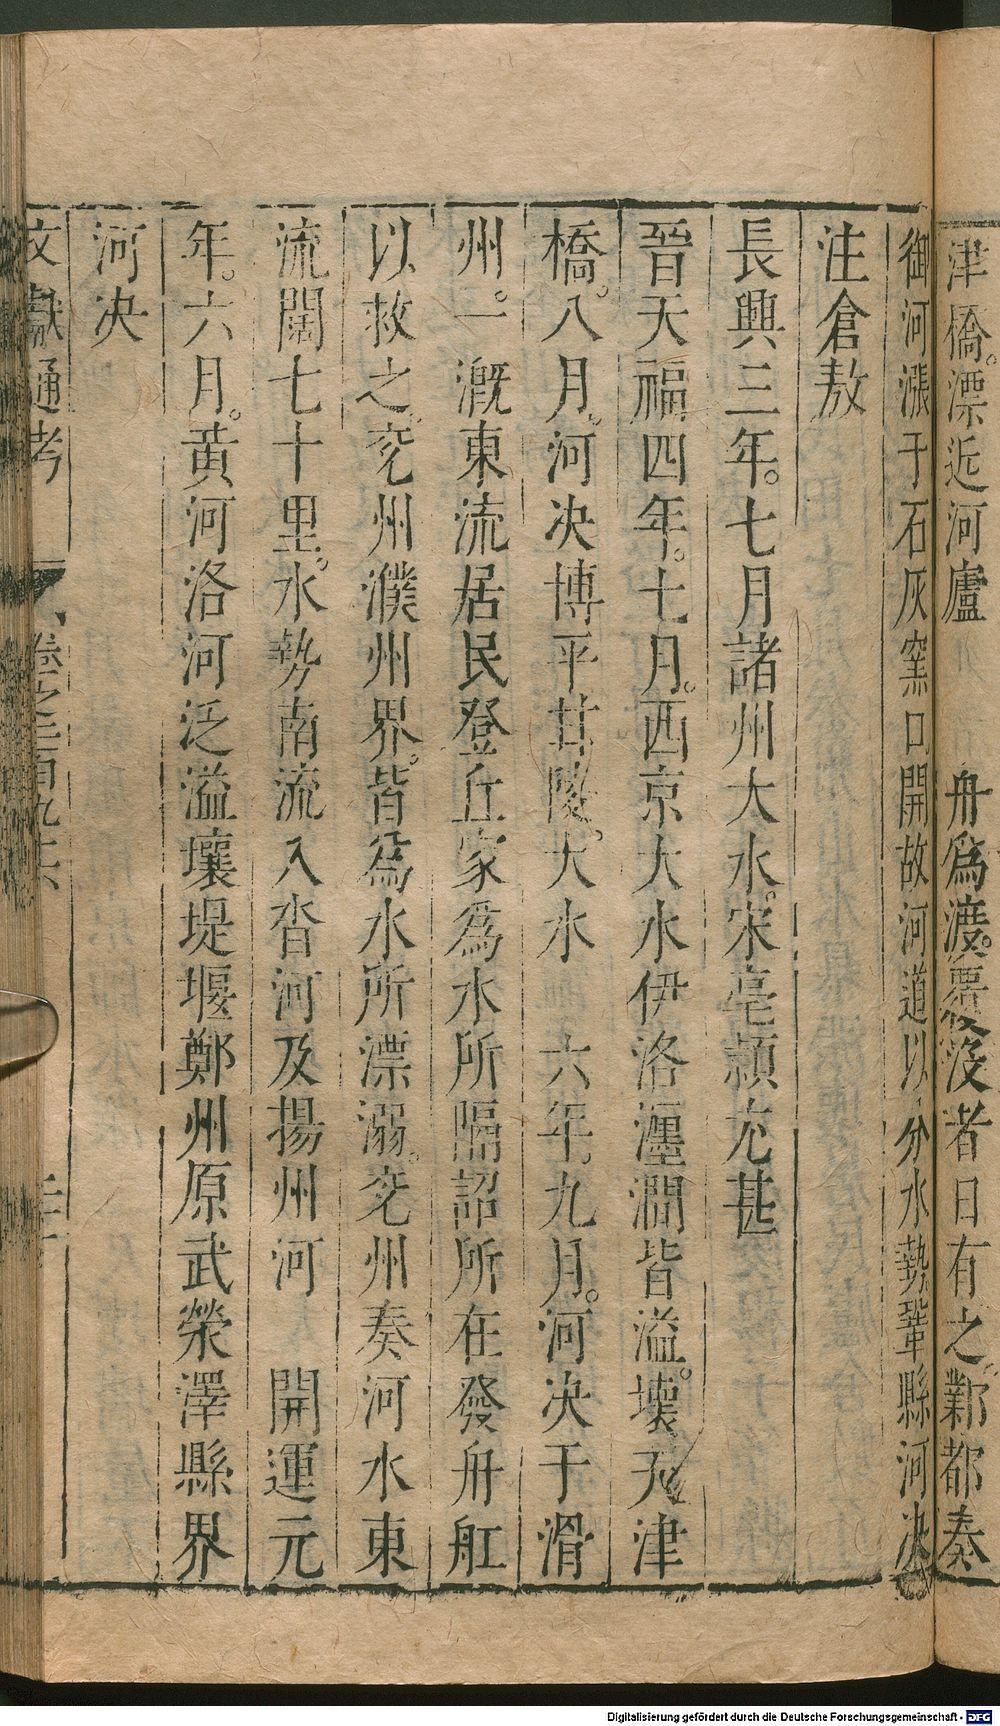 津橋。漂近河廬舟爲渡。覆没者日有之。鄴都奏
御河漲于石灰窯口開故河道以分水勢鞏縣河决
注倉敖
長興三年。七月諸州大水。宋亳潁尤甚
晉天福四年。七月。西京大水伊洛瀍澗皆溢。壞天津
橋。八月。河决博平甘陵。大水 六年。九月。河决于滑
州。一漑東流居民登丘冢爲水所隔詔所在發舟舡
以救之。兖州濮州界。皆爲水所漂溺。兖州奏河水東
流闊七十里。水勢南流入沓河及揚州河 開運元
年。六月。黃河洛河泛溢壞堤堰鄭州原武滎澤縣界
河决
文獻通考 卷之二百九十六
Digitalisierung gefördert durch die Deutsche Forschungsgemeinschaft - DFG